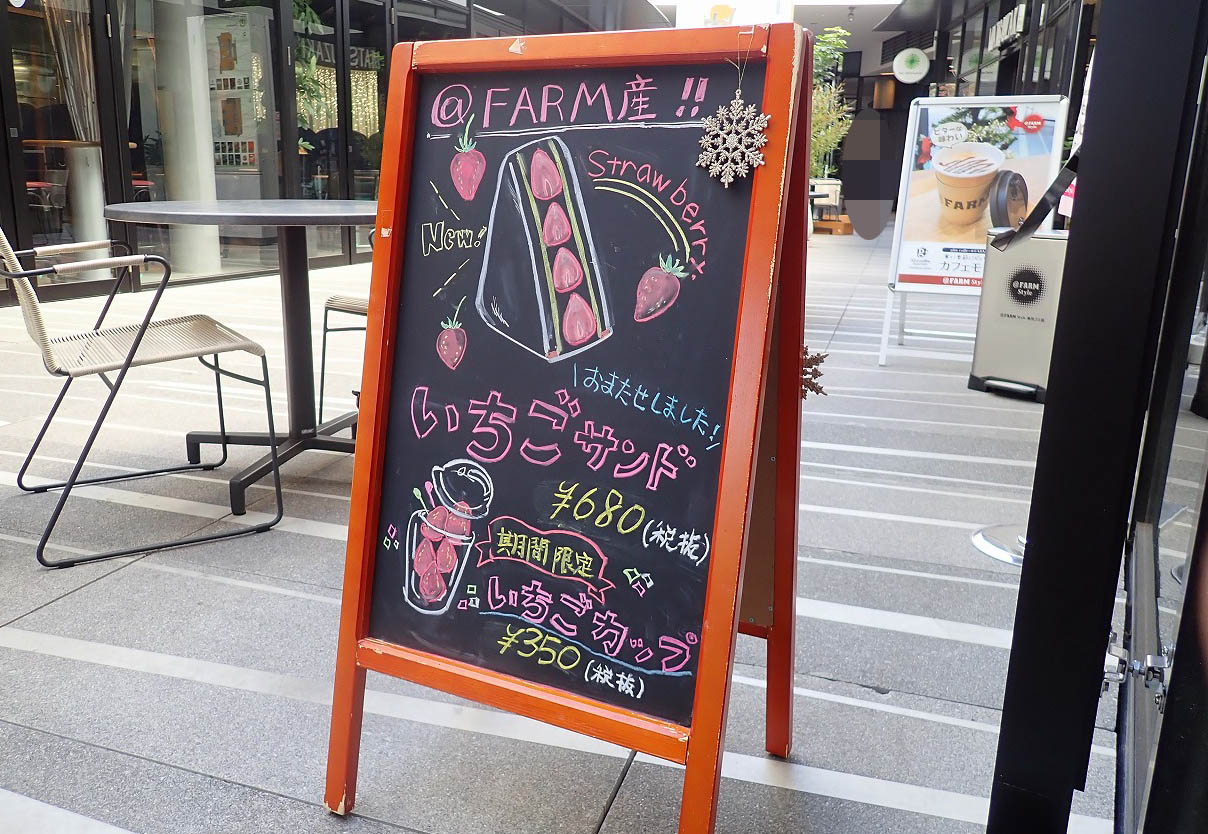 @FARM産!!
Strawberry
New!
\おまたせしました!/
いちごサンド
¥680(税抜)
期間限定
いちごカップ
¥350
(税抜)
ビターな
味わい
@FARM
FARM
カフェモ
@FARM Style
@FARM
Style